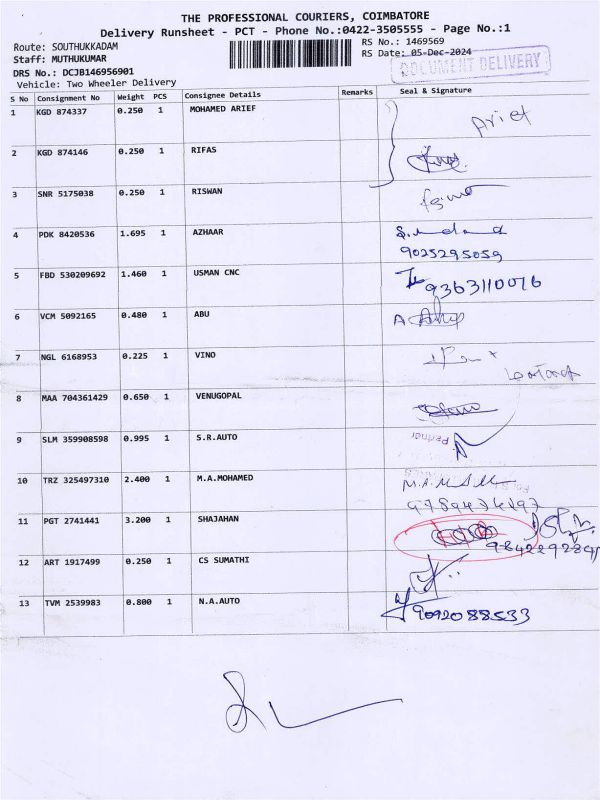 THE PROFESSIONAL COURIERS, COIMBATORE
Delivery Runsheet - PCT - Phone No.:0422-3505555 - Page No.:1
Route: SOUTHUKKADAM
RS No.: 1469569
Staff: MUTHUKUMAR
RS Date: 05-Dec-2024
DOCUMENT DELIVERY
DRS No.: DCJB146956901
Vehicle: Two Wheeler Delivery
S No Consignment No Weight PCS Consignee Details Remarks Seal & Signature
1 KGD 874337 0.250 1 MOHAMED ARIEF Arief
2 KGD 874146 0.250 1 RIFAS
3 SNR 5175038 0.250 1 RISWAN
4 PDK 8420536 1.695 1 AZHAAR
9025295059
5 FBD 530209692 1.460 1 USMAN CNC 9363110076
6 VCM 5092165 0.480 1 ABU
7 NGL 6168953 0.225 1 VINO
8 MAA 704361429 0.650 1 VENUGOPAL
9 SLM 359908598 0.995 1 S.R.AUTO Partner
10 TRZ 325497310 2.400 1 M.A.MOHAMED
11 PGT 2741441 3.200 1 SHAJAHAN
12 ART 1917499 0.250 1 CS SUMATHI
13 TVM 2539983 0.800 1 N.A.AUTO 9092088533